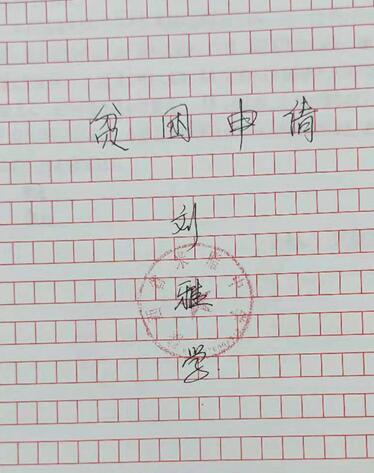 贫困申请
刘
雅
学